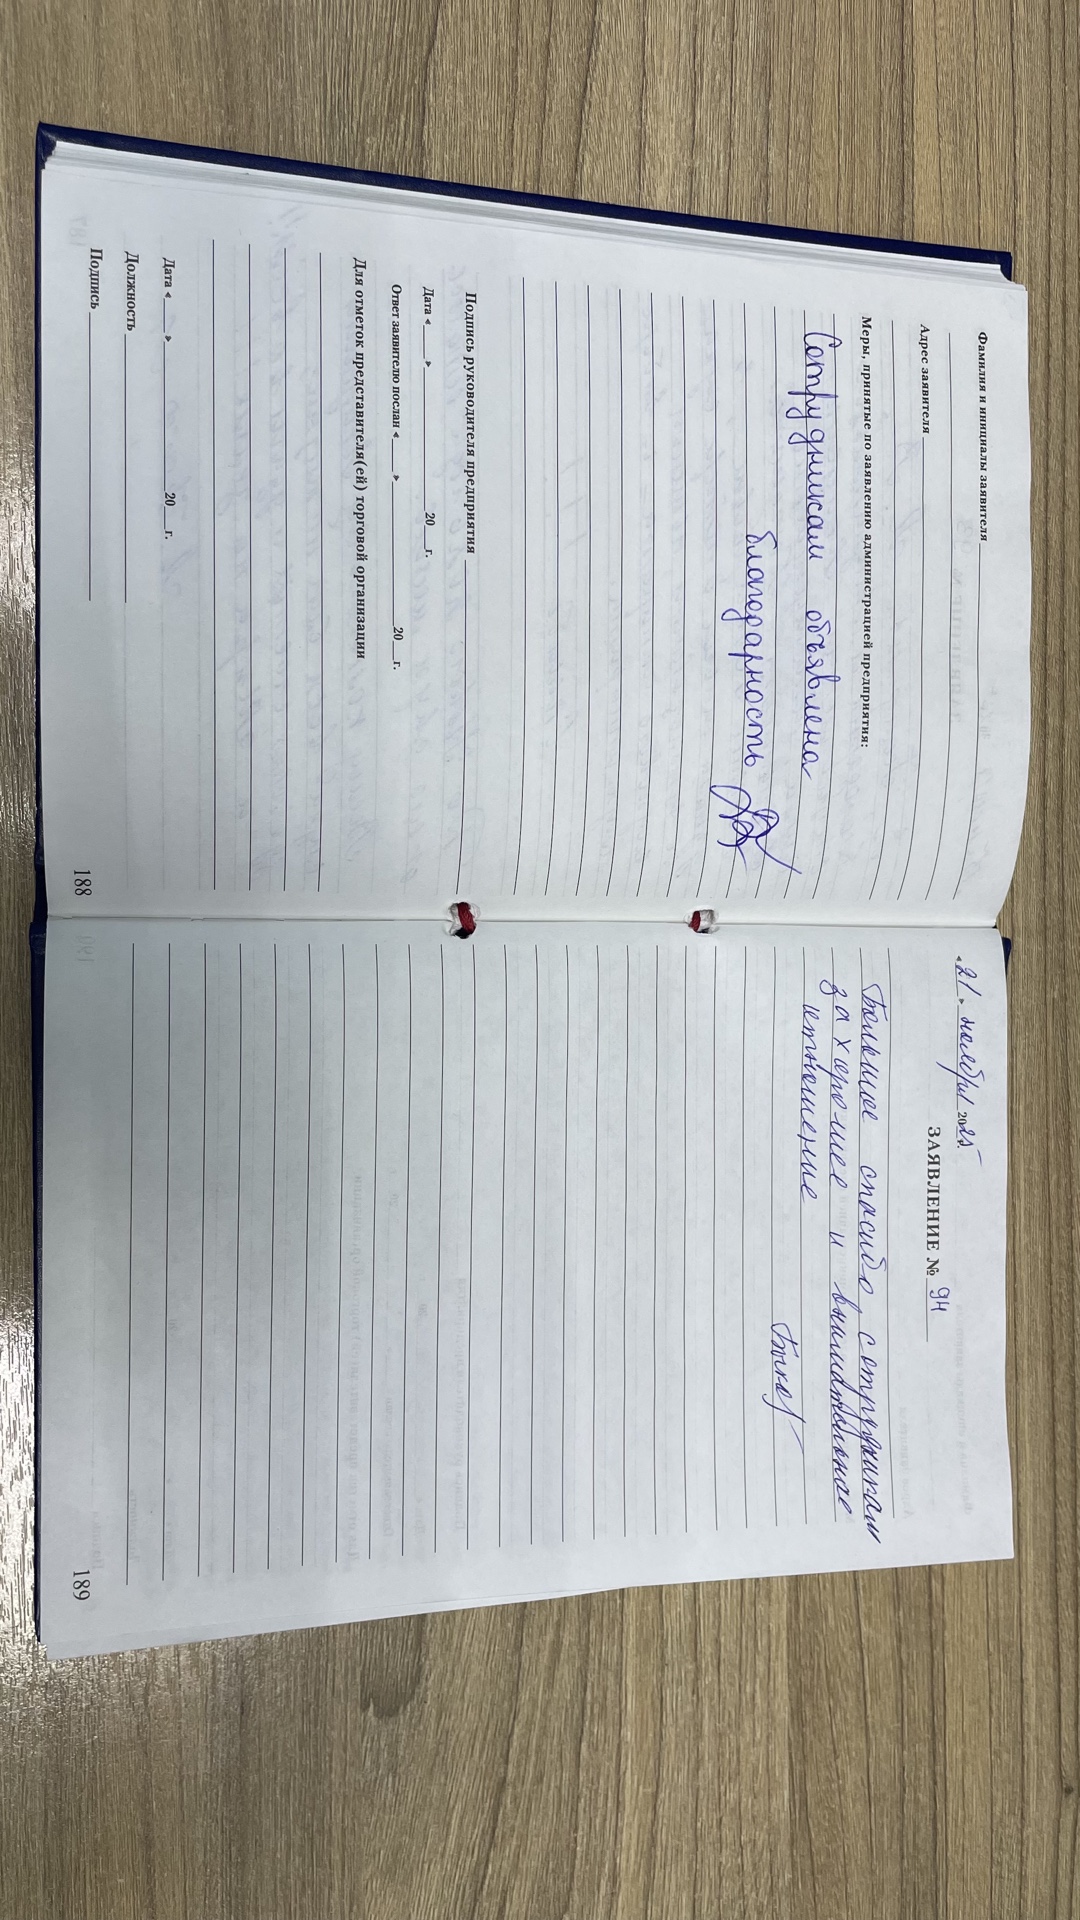 Фамилия и инициалы заявителя
Адрес заявителя
Меры, принятые по заявлению администрацией предприятия:
Сотрудникам объявлена
благодарность
Подпись руководителя предприятия
Дата « » 20 г.
Ответ заявителю послан « » 20 г.
Для отметок представителя(ей) торговой организации
Дата « » 20 г.
Должность
Подпись
188
«21» ноября 2025
ЗАЯВЛЕНИЕ № 94
Большое спасибо сотрудникам
за хорошее и внимательное
отношение
189